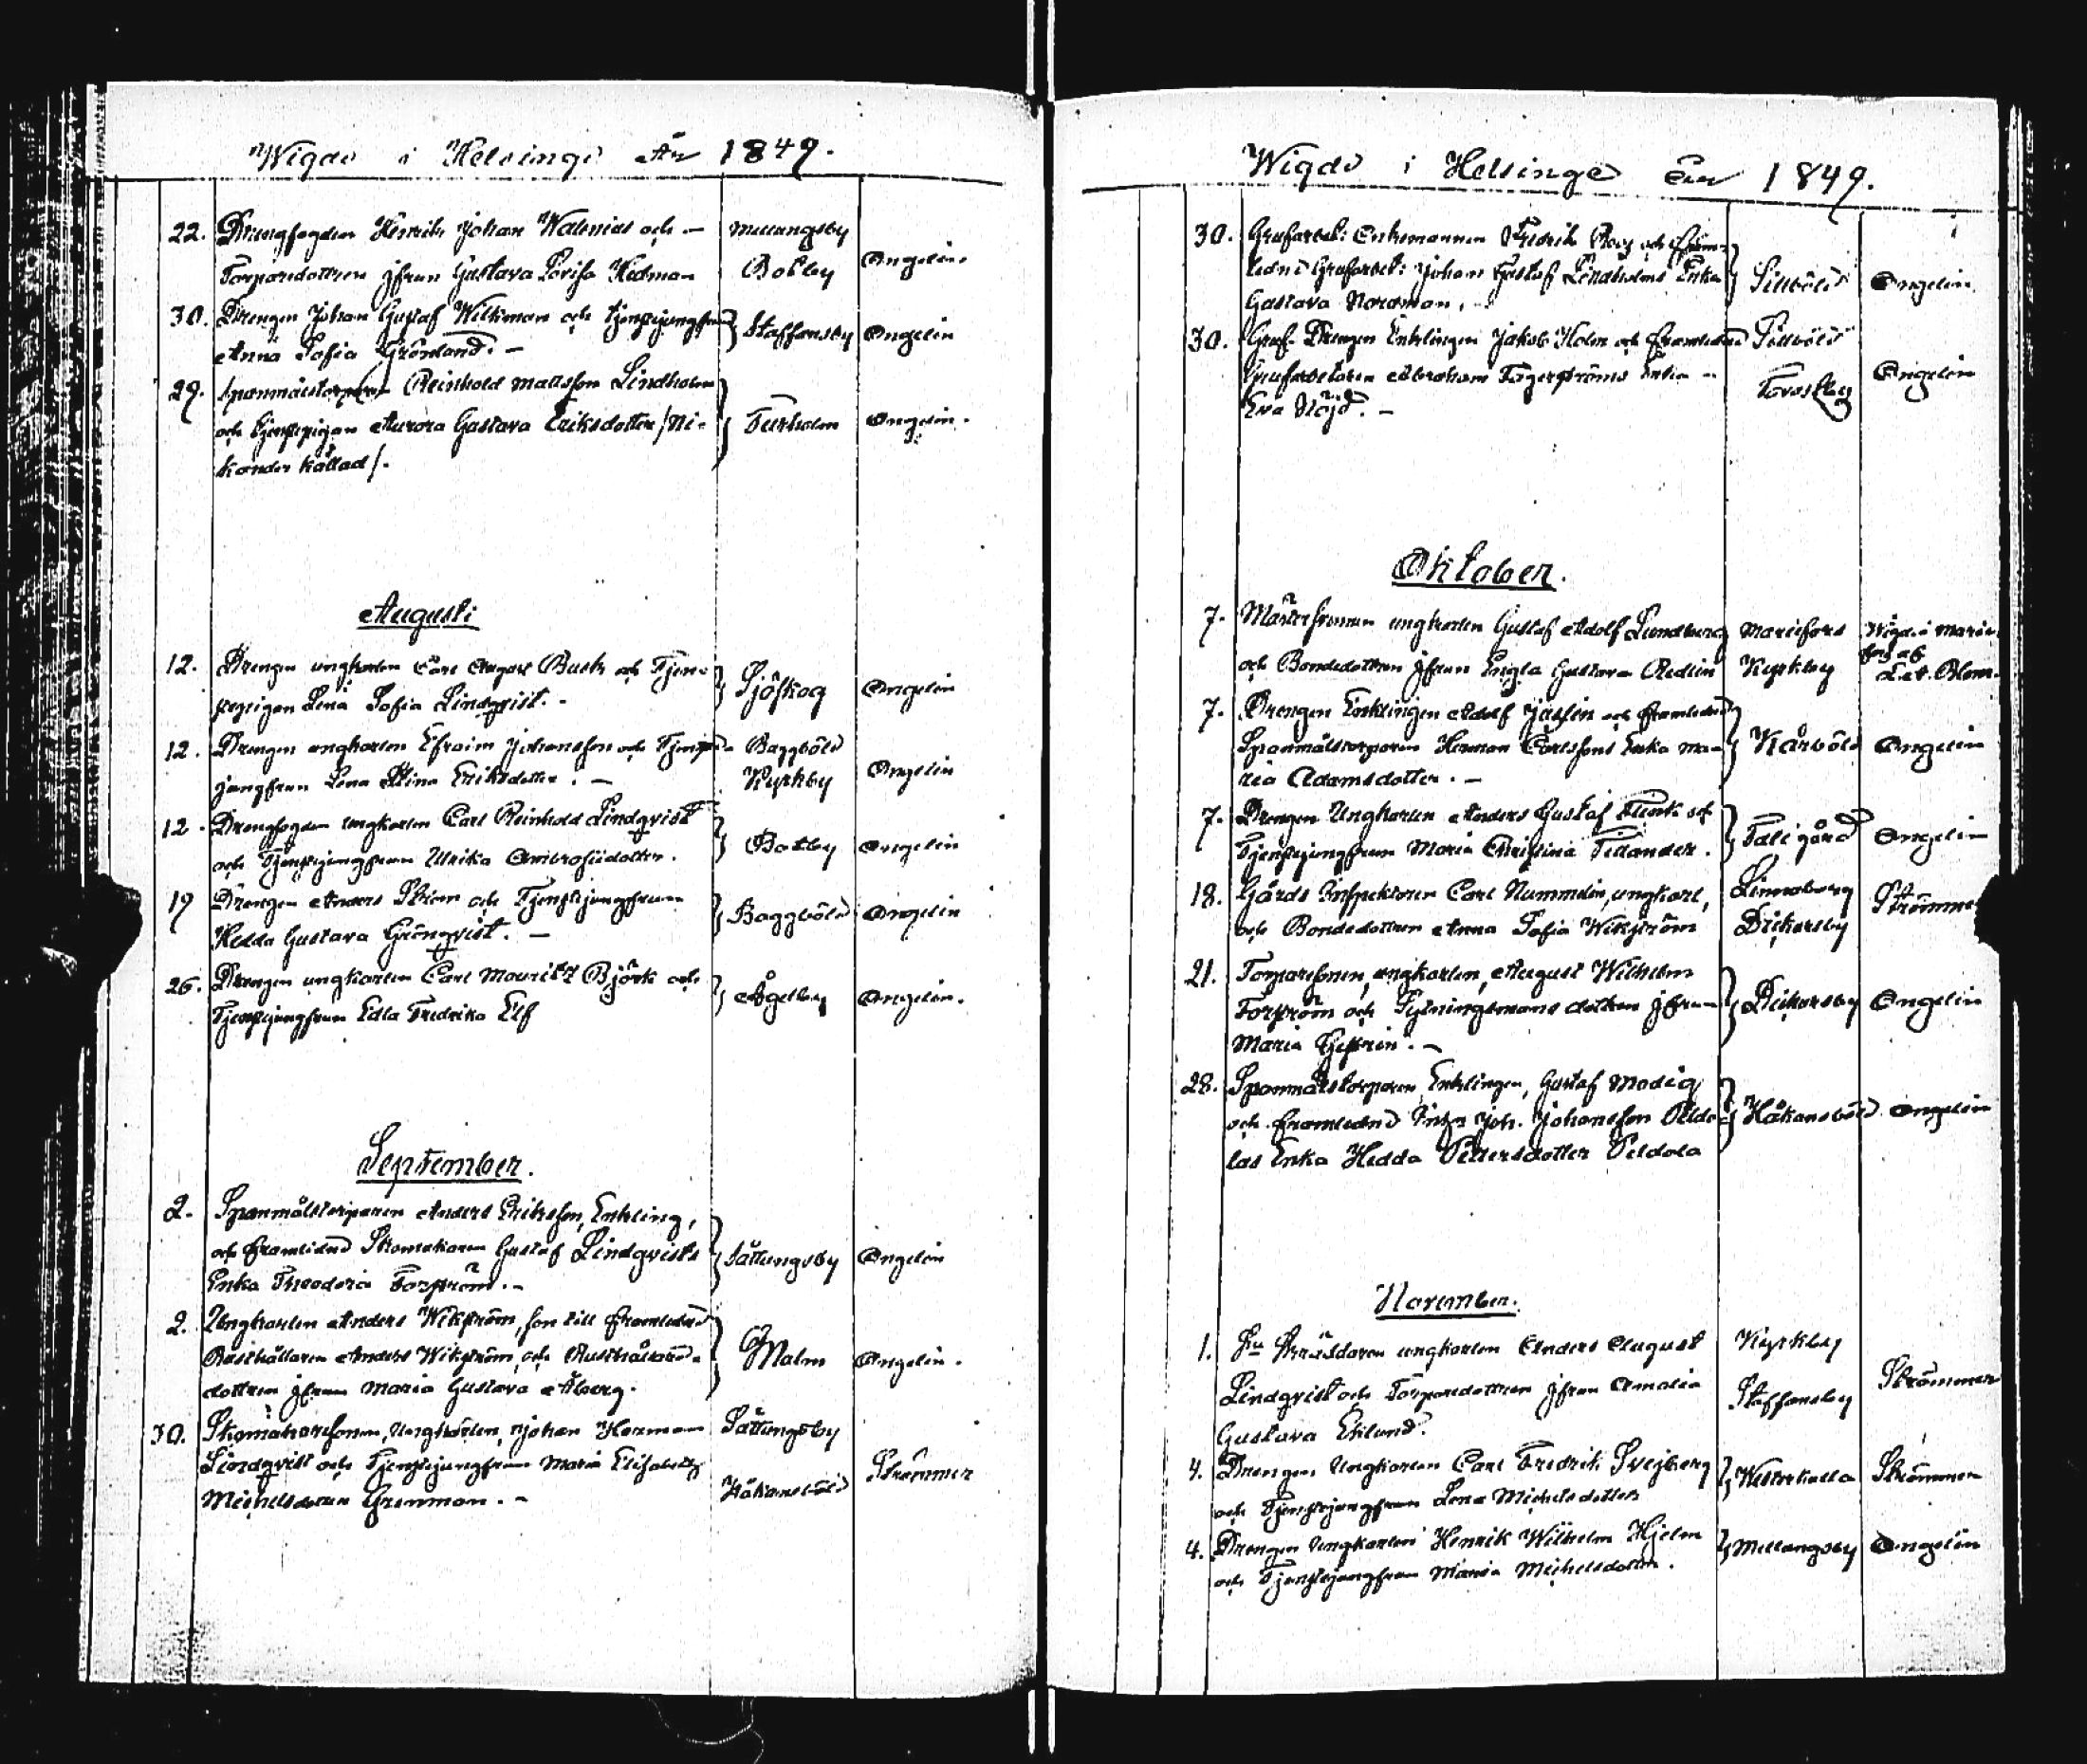 Wigde i Helsinge År 1849.
22. Drengfogden Henrik Johan Walenius och –
Torparedottren jfrun Gustava Lovisa Hedman
Mellungsby
Botby
Ongelin.
30. Drengen Johan Gustaf Willman och tjenstejungfrun
Anna Sofia Grönland. –
Staffansby
Ongelin
29. Spanmålstorparen Reinhold Mattsson Lindholm
och tjenstepigan Aurora Gustava Eriksdotter /Ni-
kander kallad/.
Turholm
Ongelin.
Augusti
12. Drengen ungkarlen Carl August Busk och Tjen-
stepigan Lena Sofia Lindqvist. –
Sjöskog
Ongelin
12. Drengen ungkarlen Efraim Johansson och Tjenste-
jungfrun Lena Stina Eriksdotter. –
Baggböle
Kyrkby
Ongelin
12. Drengfogden ungkarlen Carl Reinhold Lindqvist
och Tjenstejungfrun Ulrika Ambrosiidotter.
Botby
Ongelin
19 Drengen Anders Ström och Tjenstejungfrun
Hedda Gustava Grönqvist. –
Baggböle
Ongelin
26. Drengen ungkarlen Carl Mauritz Björk och
Tjenstejungfrun Edla Fredrika Elf
Ågelby
Ongelin.
September.
2. Spanmålstorparen Anders Eriksson, Enkling,
och framlidne Skomakaren Gustaf Lindqvists
Enka Theodora Forsström. –
Såttungsby
Ongelin
2. Ungkarlen Anders Wikström, son till framlidne
Rusthållaren Anders Wikström, och Rusthållare-
dottren jfrun Maria Gustava Åberg.
Malm
Ongelin.
30. Skomakaresonen, Ungkarlen, Johan Herman
Lindqvist och Tjenstejungfrun Maria Elisabeth
Michelsdotter Grenman. –
Såttungsby
Håkansböle
Strömmer
Wigde i Helsinge År 1849.
30. Grufarbet: Enkemannen Fredrik Roos och fram-
lidne Grufarbet: Johan Gustaf Lindholms Enka
Gustava Nordman. –
Sillböle
Ongelin
30. Gruf-Drengen Enklingen Jakob Holm och framlidne
Grufarbetaren Abraham Fagerströms Enka –
Eva Nöjd. –
Sillböle
Ongelin
Oktober.
7. Mästersonen ungkarlen Gustaf Adolf Lundberg
och Bondedottren jfrun Engla Gustava Redlin
Mariefors
Kyrkby
Wigde i Marie-
fors af
7. Drengen Enklingen Adolf Jassén och framlidne
Spanmålstorparen Herman Carlssons Enka Ma-
ria Adamsdotter. –
Kårböle
Ongelin
7. Drengen Ungkarlen Anders Gustaf Flink och
Tjenstejungfrun Maria Christina Tellander.
Tali gård
Ongelin
18. Gårds Inspektoren Carl Nummelin, ungkarl,
och Bondedottren Anna Sofia Wikström
Linnaberg
Dickursby
Strömmer
21. Torparesonen, ungkarlen, August Wilhelm
Forström och Fjerdingsmans dottren jfrun
Maria Sjöström. –
Dickursby
Ongelin
28. Spanmålstorparen, Enklingen, Gustaf Modig
och framlidne Inhys Joh. Johansson Peldo-
las Enka Hedda Pettersdotter Peldola
Håkansböle
Ongelin
November.
1. Skräddaren ungkarlen Anders August
Lindqvist och Torparedottren jfrun Amalia
Gustava Eklund.
Kyrkby
Staffansby
Strömmer
4. Drengen Ungkarlen Carl Fredrik Svejberg
och Tjenstejungfrun Lena Michelsdotter
Westerkulla
Strömmer
4. Drengen Ungkarlen Henrik Wilhelm Hjelm
och Tjenstejungfrun Maria Michelsdotter.
Mellungsby
Ongelin